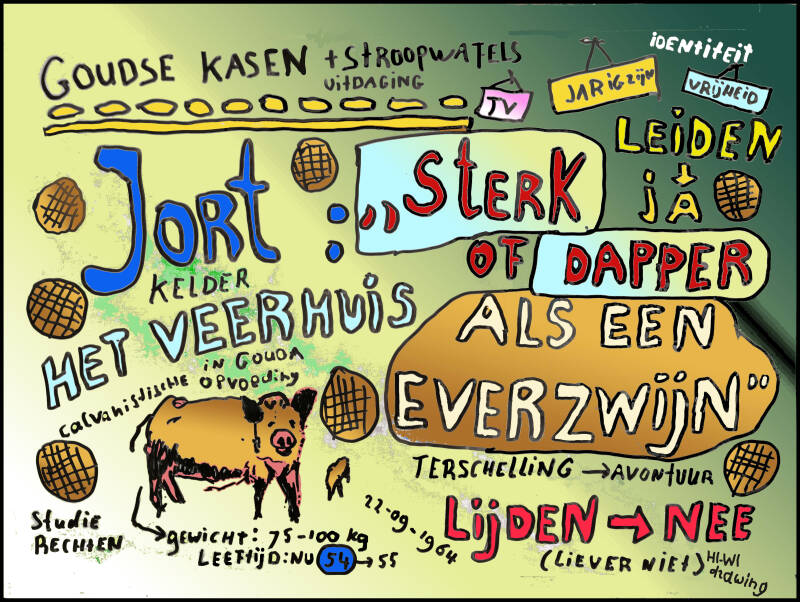 GOUDSE KASEN + STROOPWAFELS
UITDAGING
TV
JARIG ZIJN
iDENTiTEiT
VRIJHEID
LEiDEN
jA
JORT :
KELDER
„STERK
OF DAPPER
ALS EEN
EVERZWIJN”
HET VEERHUIS
in GOUDA
calvanistische opvoeding
TERSCHELLING → AVONTUUR
LIJDEN → NEE
(LIEVER NIET)
Studie
RECHTEN
gewicht: 75-100 kg
LEEFTIJD: NU 54 → 55
22-09-1964
HI-WI
drawing